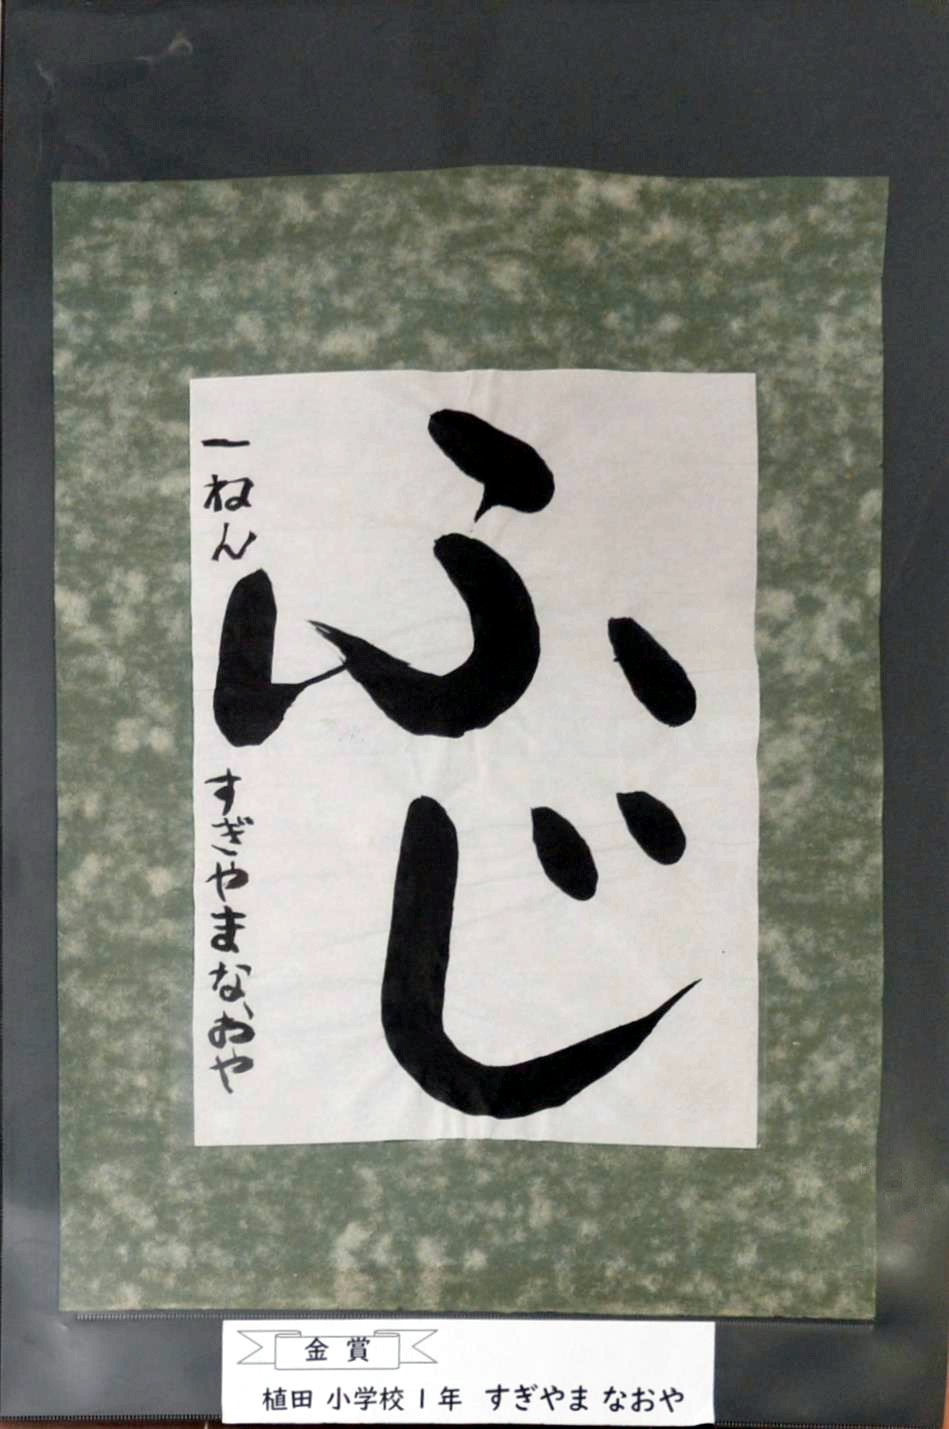 ふじ
一ねん すぎやまなおや
金賞
植田 小学校 1年 すぎやま なおや